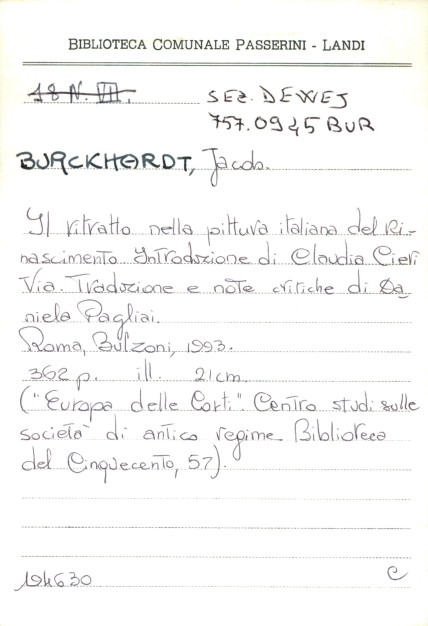 BIBLIOTECA COMUNALE PASSERINI - LANDI
18 N. VII.
SEZ. DEWEJ
757.0945 BUR
BURCKHARDT, Jacob.
Il ritratto nella pittura italiana del Ri-
nascimento. Introduzione di Claudia Cieri
Via. Traduzione e note critiche di Da
niela Pagliai.
Roma, Bulzoni, 1993.
362 p. ill. 21 cm.
("Europa delle Corti". Centro studi sulle
società di antico regime. Biblioteca
del Cinquecento, 57).
194630
C